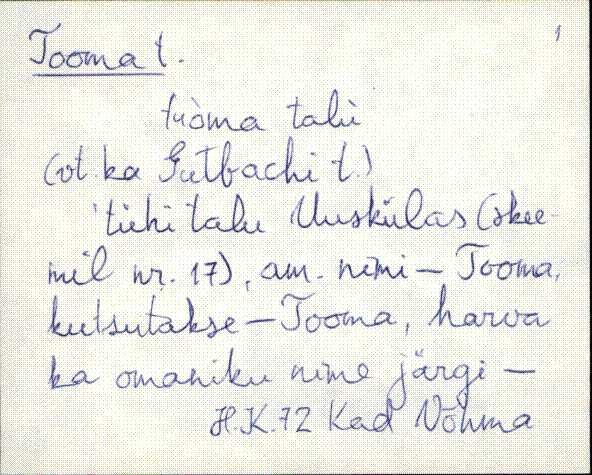 1
Tooma t.
tùoma talù
(vt. ka Gutbachi t.)
tühi talu Uuskülas (skee-
mil nr. 17), am. nimi - Tooma,
kutsutakse - Tooma, harva
ka omaniku nime järgi -
H.K. 72 Kad Võhma